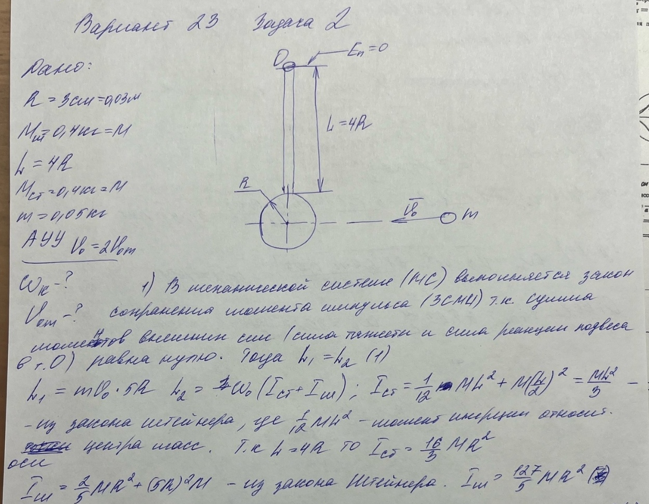 Вариант 23 Задача 2
Дано:
R = 3см = 0,03м
Mш = 0,4кг = M
L = 4R
Mст = 0,4кг = M
m = 0,05кг
АУУ V₀ = 2Vот
ωк - ?
Vот - ?
O Eп = 0
L = 4R
R
V̄₀ m
1) В механической системе (МС) выполняется закон
сохранения момента импульса (ЗСМИ) т.к. сумма
моментов внешних сил (сила тяжести и сила реакции подвеса
в т.О) равна нулю. Тогда L₁ = L₂ (1)
L₁ = mV₀·5R L₂ = ω₀(Iст + Iш); Iст = 1/12 ML² + M(L/2)² = ML²/3 -
- из закона Штейнера, где 1/12 ML² - момент инерции относит.
оси центра масс. Т.к L = 4R то Iст = 16/3 MR²
Iш = 2/5 MR² + (5R)²M - из закона Штейнера. Iш = 127/5 MR²